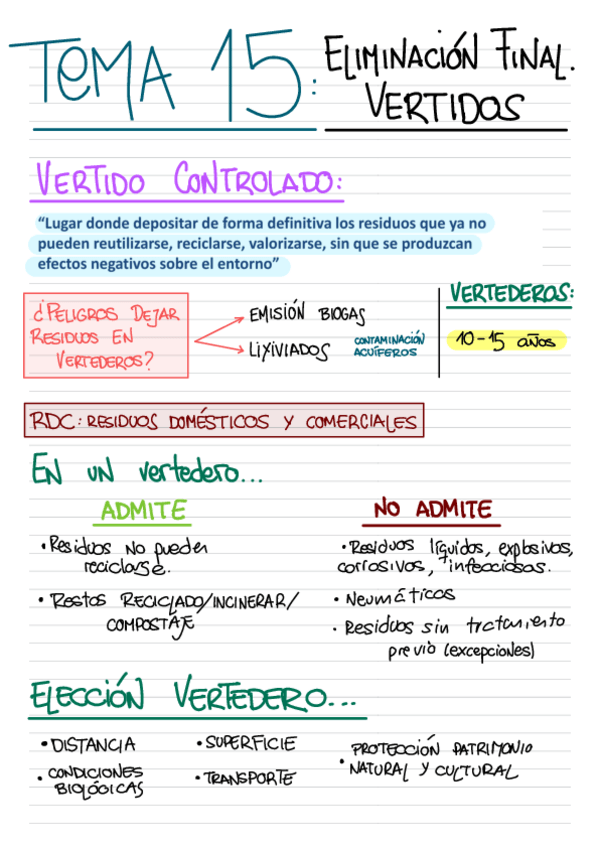 TEMA 15: ELIMINACIÓN FINAL.
VERTIDOS
VERTIDO CONTROLADO:
“Lugar donde depositar de forma definitiva los residuos que ya no
pueden reutilizarse, reciclarse, valorizarse, sin que se produzcan
efectos negativos sobre el entorno”
¿PELIGROS DEJAR
RESIDUOS EN
VERTEDEROS?
EMISIÓN BIOGAS
LIXIVIADOS
CONTAMINACIÓN
ACUÍFEROS
VERTEDEROS:
10-15 años
RDC: RESIDUOS DOMÉSTICOS Y COMERCIALES
EN UN vertedero...
ADMITE
• Residuos no pueden
reciclarse.
• RESTOS RECICLADO/INCINERAR/
COMPOSTAJE
NO ADMITE
• Residuos líquidos, explosivos,
corrosivos, infecciosos.
• Neumáticos
• Residuos sin tratamiento
previo (excepciones)
ELECCIÓN VERTEDERO...
• DISTANCIA
• CONDICIONES
BIOLÓGICAS
• SUPERFICIE
• TRANSPORTE
• PROTECCIÓN PATRIMONIO
NATURAL Y CULTURAL